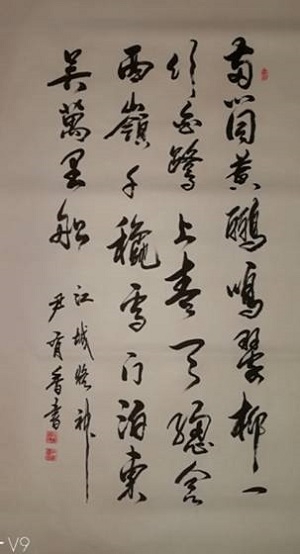 两箇黄鸝鳴翠柳一
行白鷺上青天窗含
西嶺千秋雪门泊東
吴萬里船
江城
尹香書
V9